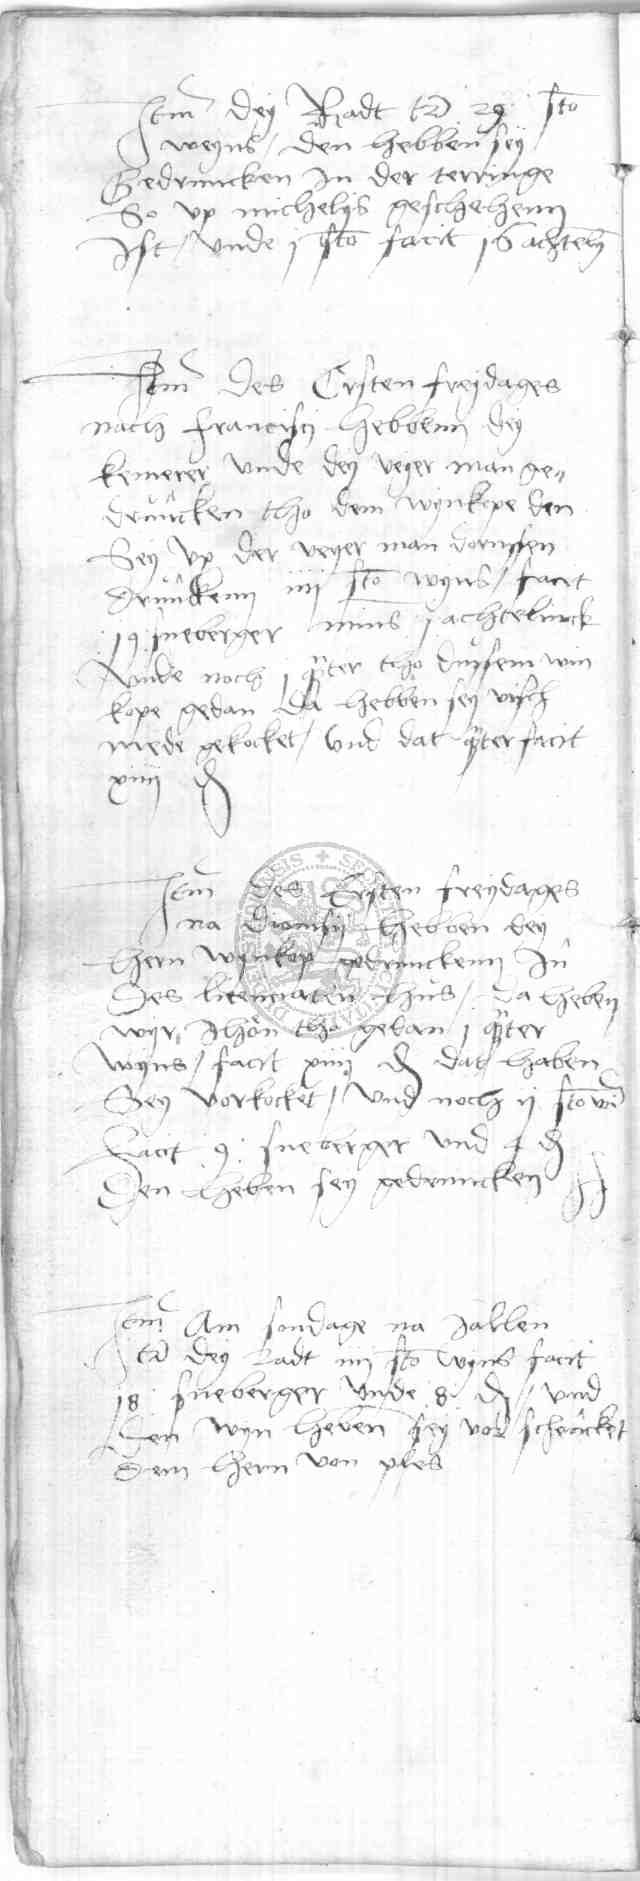 Item dey Radt td 29 sto
weyns / den hebben sey
Gedruncken In der terringe
So up michelis geschehenn
Ist / Unde j sto facit 16 achtelij
Item des Ersten freydages
nach francisci hebbenn dey
kemerer Unde dey veyer man ge„
druncken tho dem wynkope den
Sey Up der veyer man dornssen
drunckenn iiij sto wyns / facit
19 sneberger mins j achtelinck
Unde noch j qrter tho dussem win
kope gedan Da hebben sey visch
mede gekocket / Und dat qrter facit
xiiij d
Item des Ersten freydages
na Dionisij hebben dey
hern wynkop gedrunckenn In
Des licenciaten hus / da heben
wyr Ihön tho gedan j qrter
wyns / facit xiiij d dat haben
Sey vorkocket / Und noch ij sto
facit 9 sneberger Und 4 d
Den heben sey gedruncken
Item Am sondage na Gallen
td dey Radt iiij sto wyns facit
18 sneberger Unde 8 d / Und
Den wyn heben sey vor schencket
Dem hern von ples